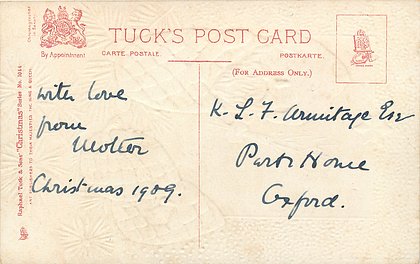 TUCK'S POST CARD
By Appointment
CARTE POSTALE.
POSTKARTE.
(FOR ADDRESS ONLY.)
Raphael Tuck & Sons' "Christmas" Series No.
With love
from
Mother
Christmas 1909.
K. L. F. Armitage Esq
Park Home
Oxford.